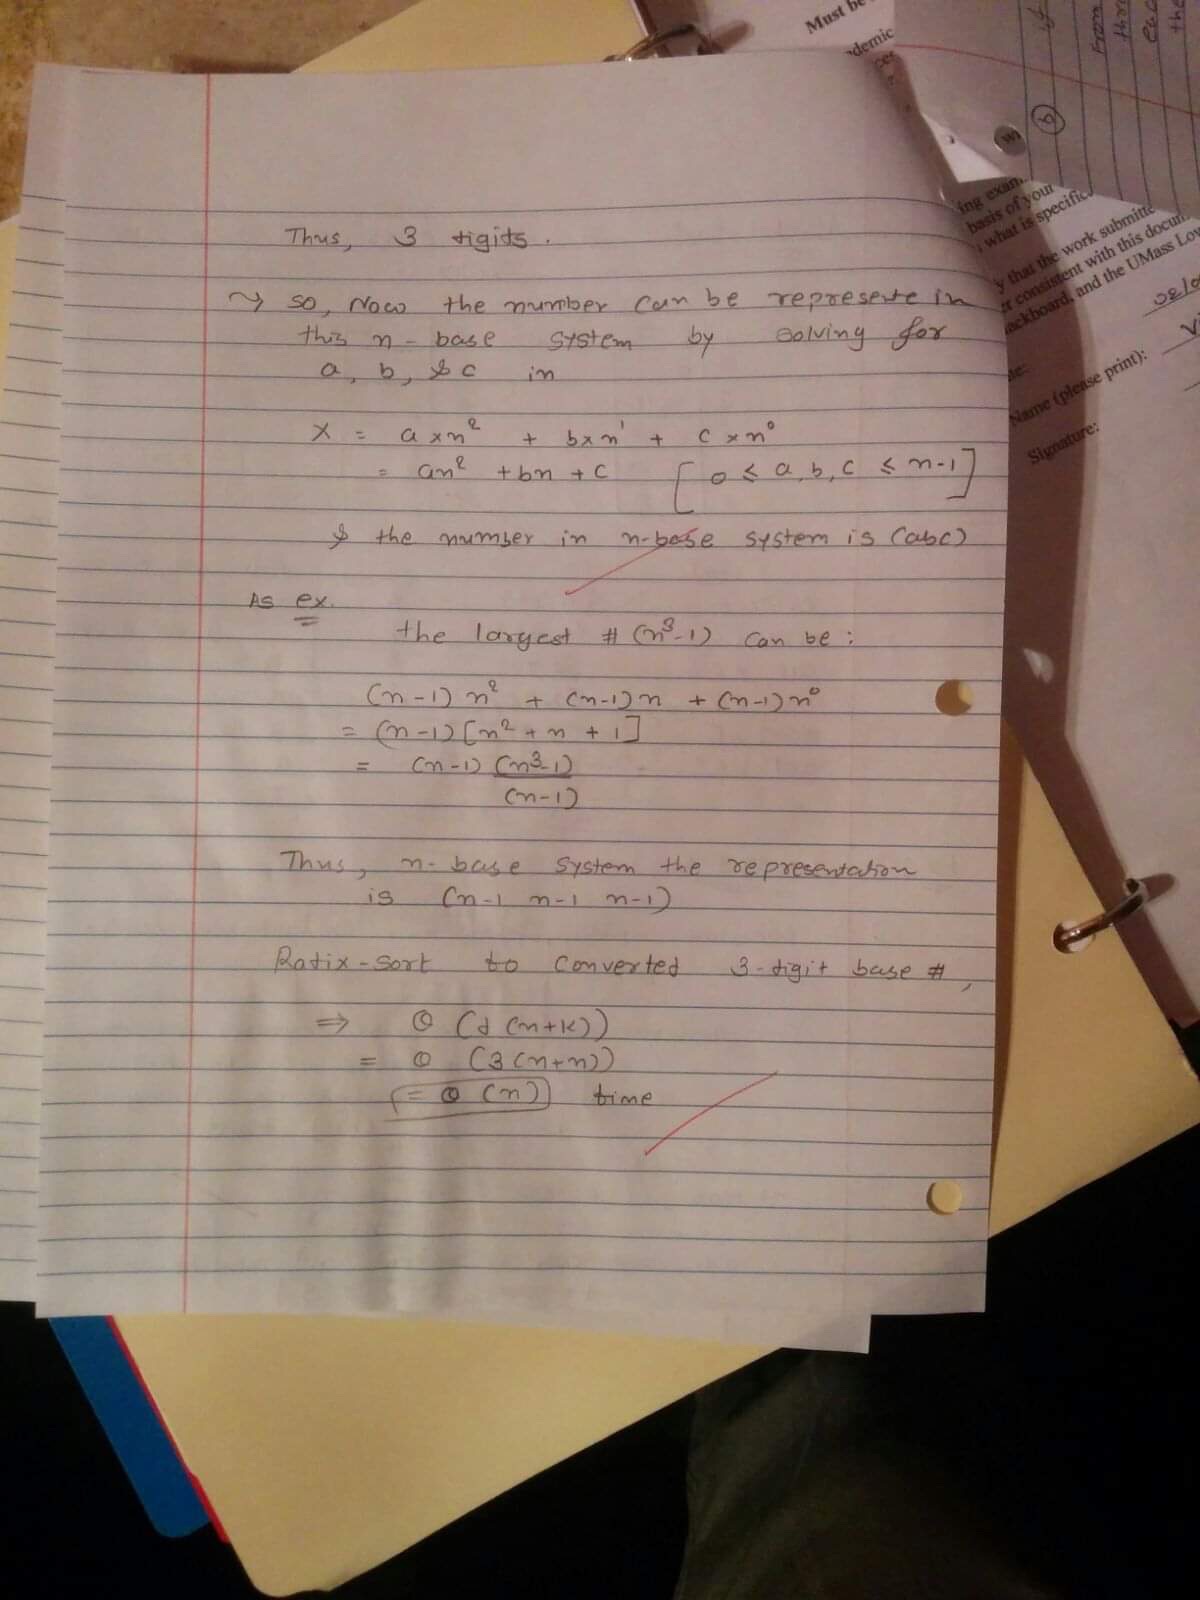 Thus, 3 digits.
~> so, Now the number can be represente in
this n-base system by solving for
a, b, & c in
X = a x n² + b x n¹ + c x n⁰
= an² + bn + c [0 ≤ a, b, c ≤ n-1]
& the number in n-base system is (abc)
As ex.
the largest # (n³-1) can be:
(n-1) n² + (n-1) n + (n-1) n⁰
= (n-1) [n² + n + 1]
= (n-1) (n³-1)
(n-1)
Thus, n-base system the representation
is (n-1 n-1 n-1)
Radix-sort to converted 3-digit base #,
⇒ Θ (d (n+k))
= Θ (3 (n+n))
= Θ (n) time
Must be
ing exam
basis of your
what is specific
y that the work submitte
consistent with this docum
ackboard, and the UMass Low
Name (please print):
Signature:
if
From